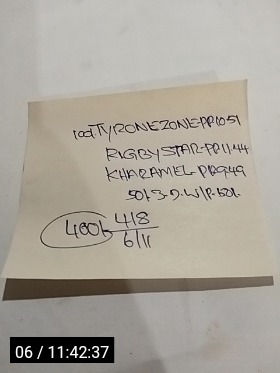 100/. TYRONEZONE-PR10-51
RIGBYSTAR-PR11-44
KHARAMEL-PR9-49
50/.3-D-W/P-50/.
400/- 4/8
6/11
06 / 11:42:37